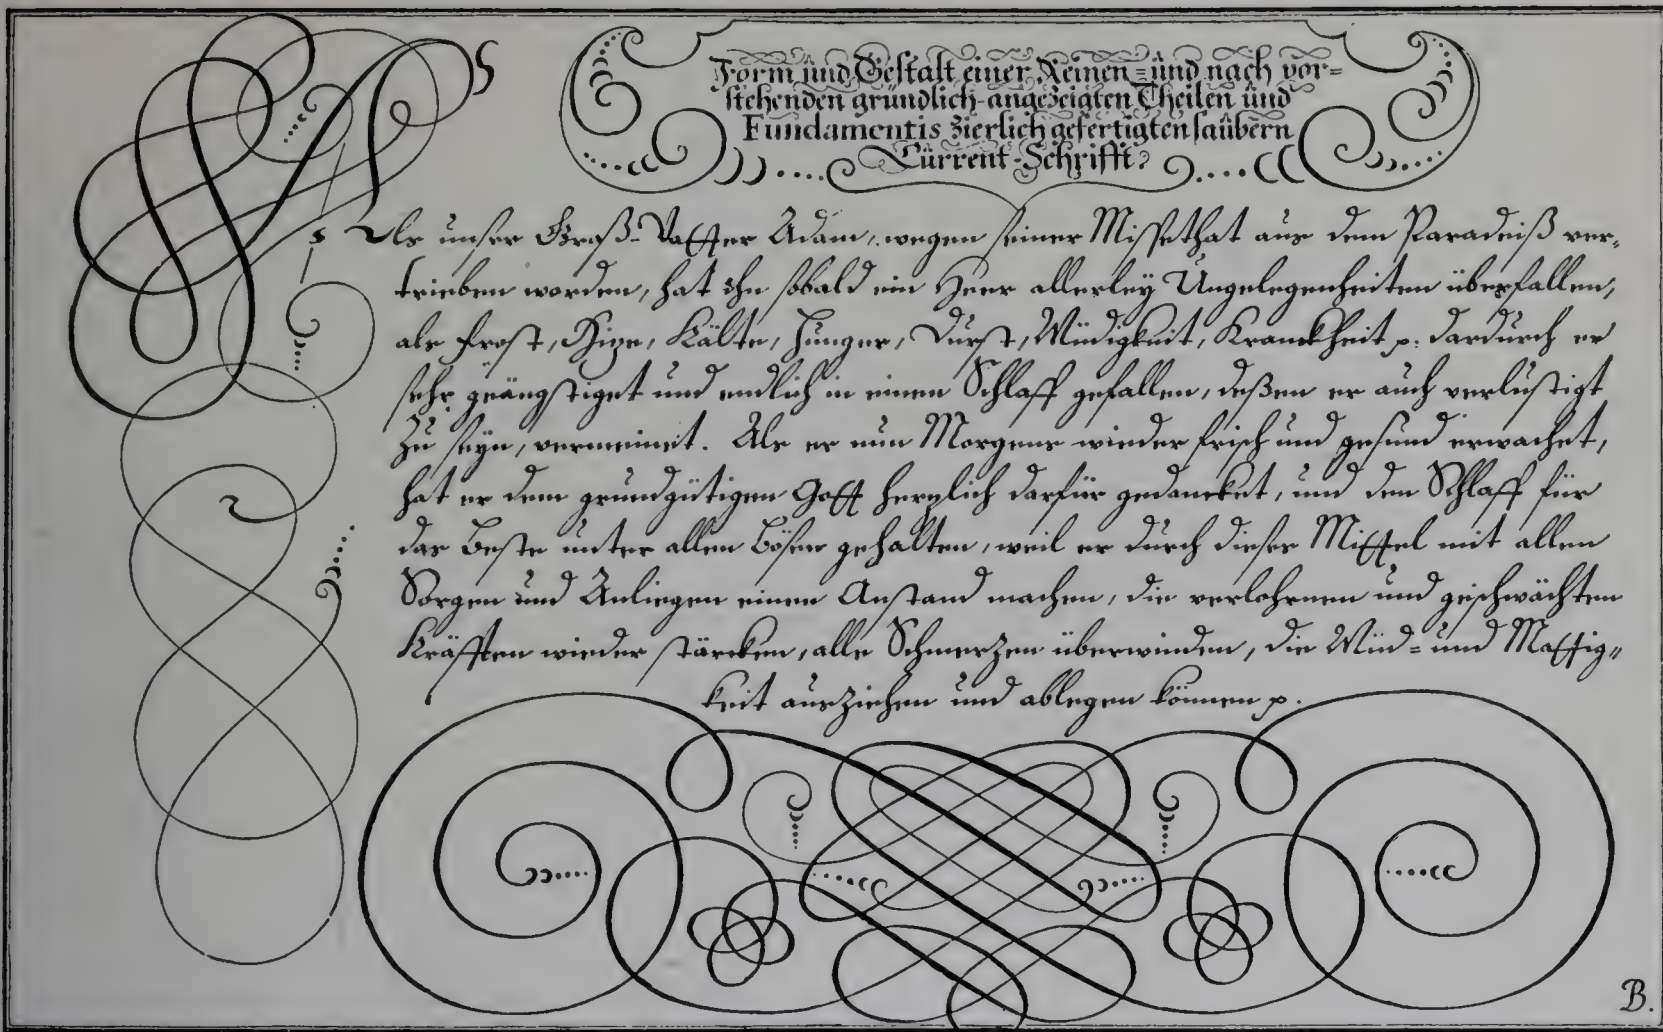 Form und Gestalt einer Reinen= und nach vor=
stehenden gründlich-angezeigten Theilen und
Fundamentis zierlich gefertigten saubern
Current-Schrifft.
Als unser Groß-Vatter Adam, wegen seiner Missethat aus dem Paradeiß ver=
trieben worden, hat ihn sobald ein Heer allerley Ungelegenheiten überfallen,
als Frost, Hize, Kälte, Hunger, Durst, Müdigkeit, Kranckheit p. dardurch er
sehr geängstiget und endlich in einen Schlaff gefallen, deßen er auch verlustigt
zu seyn, vermeinet. Als er nun Morgens wieder frisch und gesund erwachet,
hat er dem grundgütigen Gott herzlich darfür gedancket, und den Schlaff für
das Beste unter allen Bösen gehalten, weil er durch dieses Mittel mit allen
Sorgen und Anliegen einen Anstand machen, die verlohrnen und geschwächten
Kräfften wieder stärcken, alle Schmerzen überwinden, die Müd= und Mattig=
keit ausziehen und ablegen können p.
B.